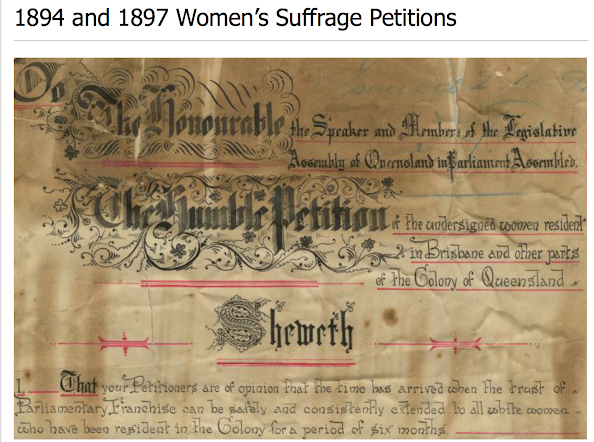 1894 and 1897 Women’s Suffrage Petitions
To
The Honourable the Speaker and Members of the Legislative
Assembly of Queensland in Parliament Assembled.
The Humble Petition of the undersigned women resident
in Brisbane and other parts
of the Colony of Queensland
Sheweth
1. That your Petitioners are of opinion that the time has arrived when the trust of
Parliamentary Franchise can be safely and consistently extended to all white women
who have been resident in the Colony for a period of six months.